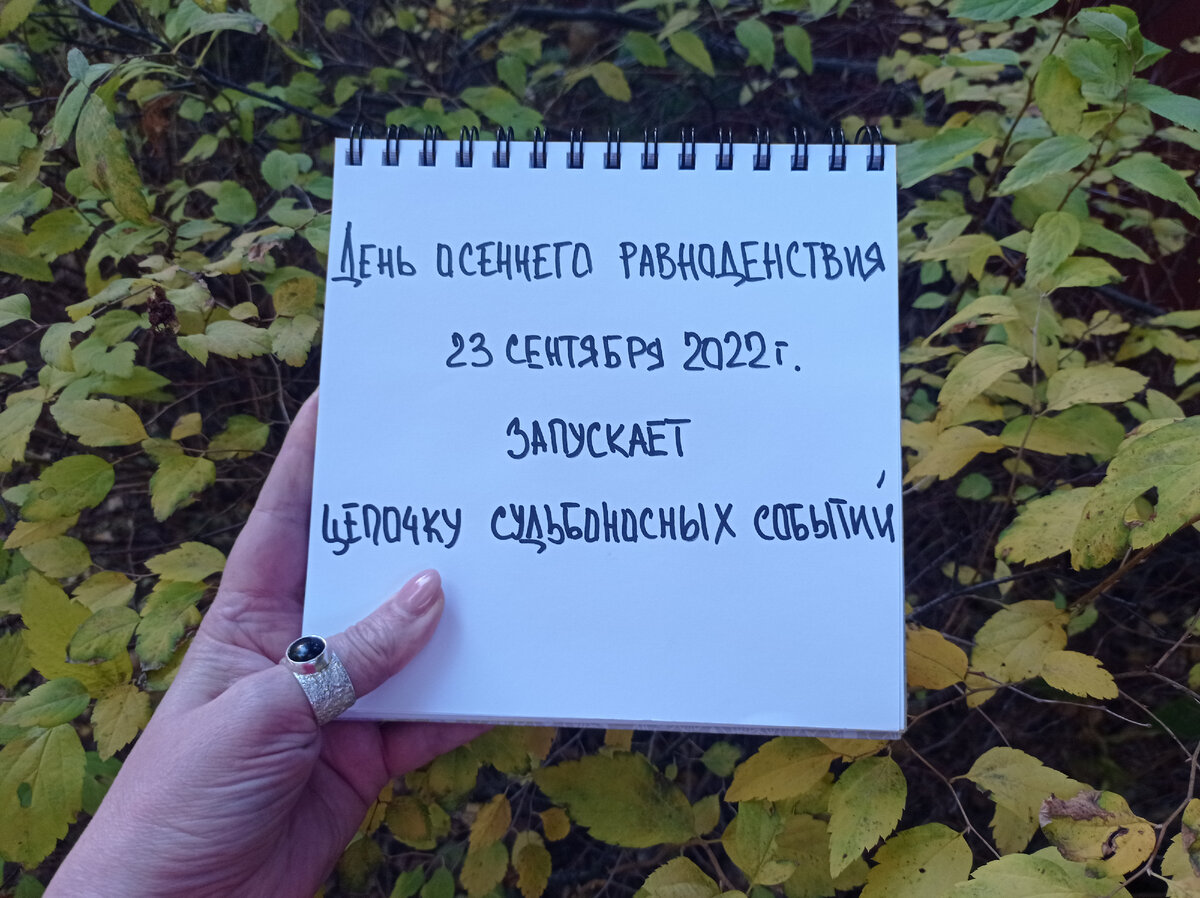 День осеннего равноденствия
23 сентября 2022 г.
запускает
цепочку судьбоносных событий